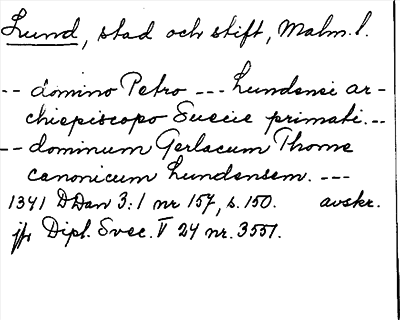 Lund, stad och stift, Malm. l.
-- domino Petro --- Lundensi ar-
chiepiscopo Suecie primati. --
-- dominum Gerlacum Thome
canonicum Lundensem. ---
1341 DDan 3:1 nr 157, s. 150. avskr.
jfr Dipl. Svec. V 24 nr. 3551.